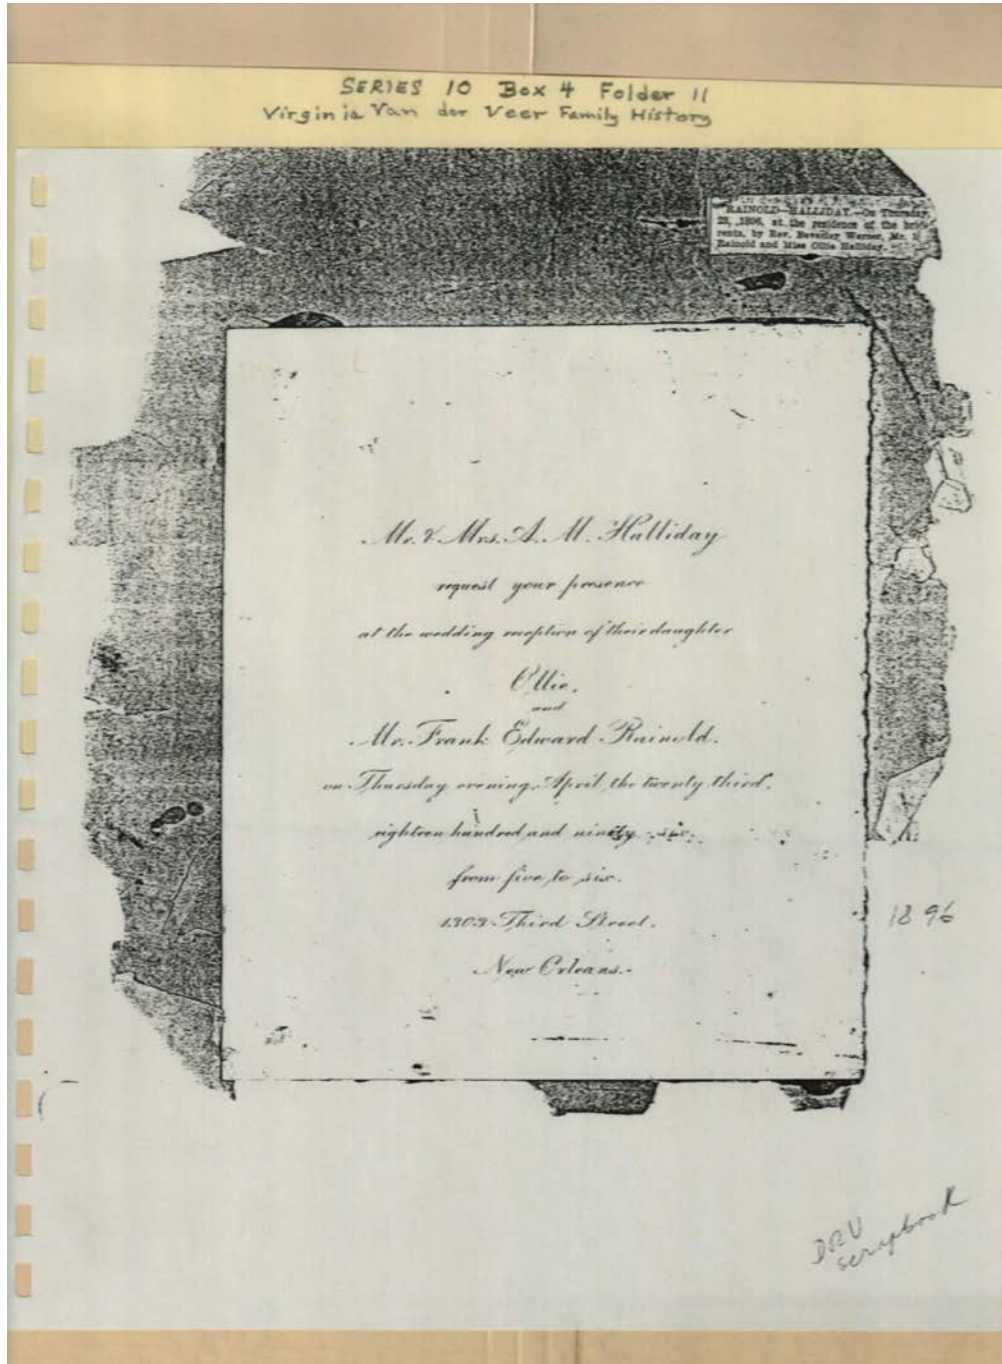 SERIES 10 Box 4 Folder 11
Virginia Van der Veer Family History
RAINOLD—HALLIDAY.—On Thursday,
23, 1896, at the residence of the bride
rents, by Rev. Beverley Warner, Mr.
Rainold and Miss Ollie Halliday.
Mr. & Mrs. A. M. Halliday
request your presence
at the wedding reception of their daughter
Ollie,
and
Mr. Frank Edward Rainold.
on Thursday evening, April, the twenty third,
eighteen hundred and ninety six.
from five to six.
1303 Third Street.
New Orleans.
1896
DRV
scrapbook